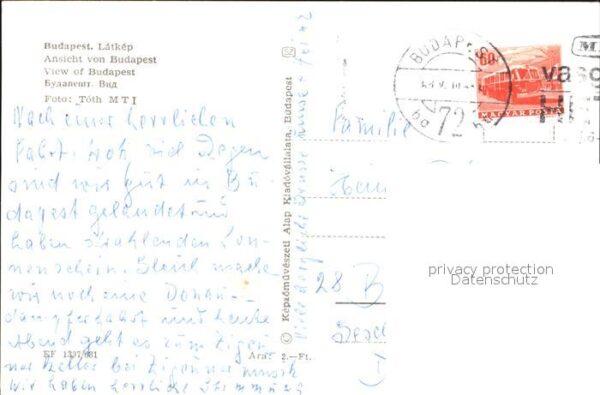 Budapest. Látkép
Ansicht von Budapest
View of Budapest
Будапешт. Вид
Foto: Tóth MTI
Nach einer herrlichen
Fahrt, trotz viel Regen
sind wir gut in Bu-
dapest gelandet und
haben strahlenden Son-
nenschein. Gleich machen
wir noch eine Donau-
dampferfahrt und heute
Abend geht es zum Zigeu-
ner Keller bei Zigeunermusik
wir haben herrliche Stimmung
EF 1397/681
Ára: 2.–Ft.
© Képzőművészeti Alap Kiadóvállalata, Budapest
Viele herzliche Grüsse
BUDAPEST
72
60f
MAGYAR POSTA
Familie
28 B
privacy protection
Datenschutz